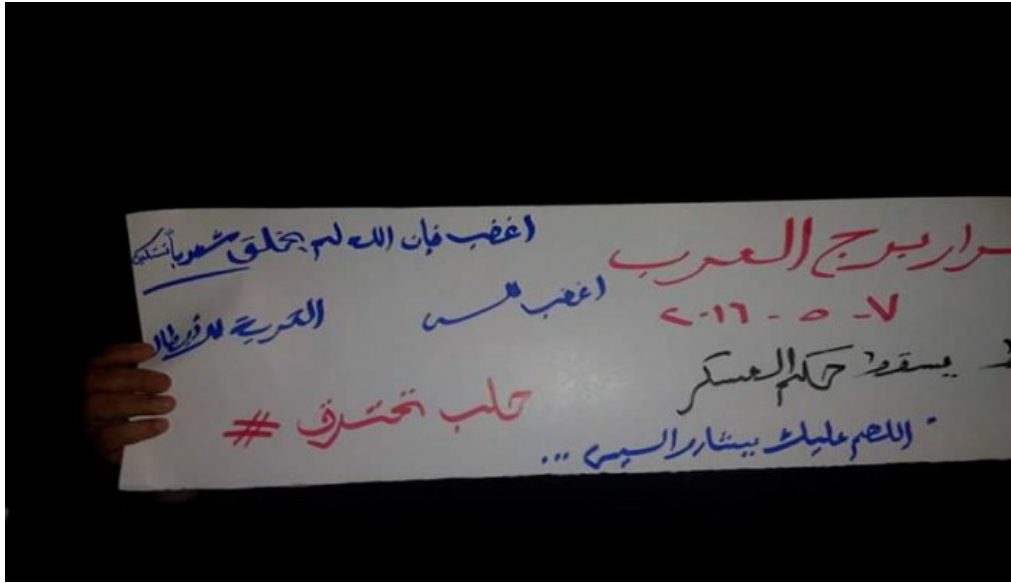 ـرار برج العرب
٧ - ٥ - ٢٠١٦
يسقط حكم العسكر
اللهم عليك ببشار والسيسي ...
اغضب فإن الله لم يخلق شعوباً تستكين
اغضب
الحرية للأبطال
# حلب تحترق